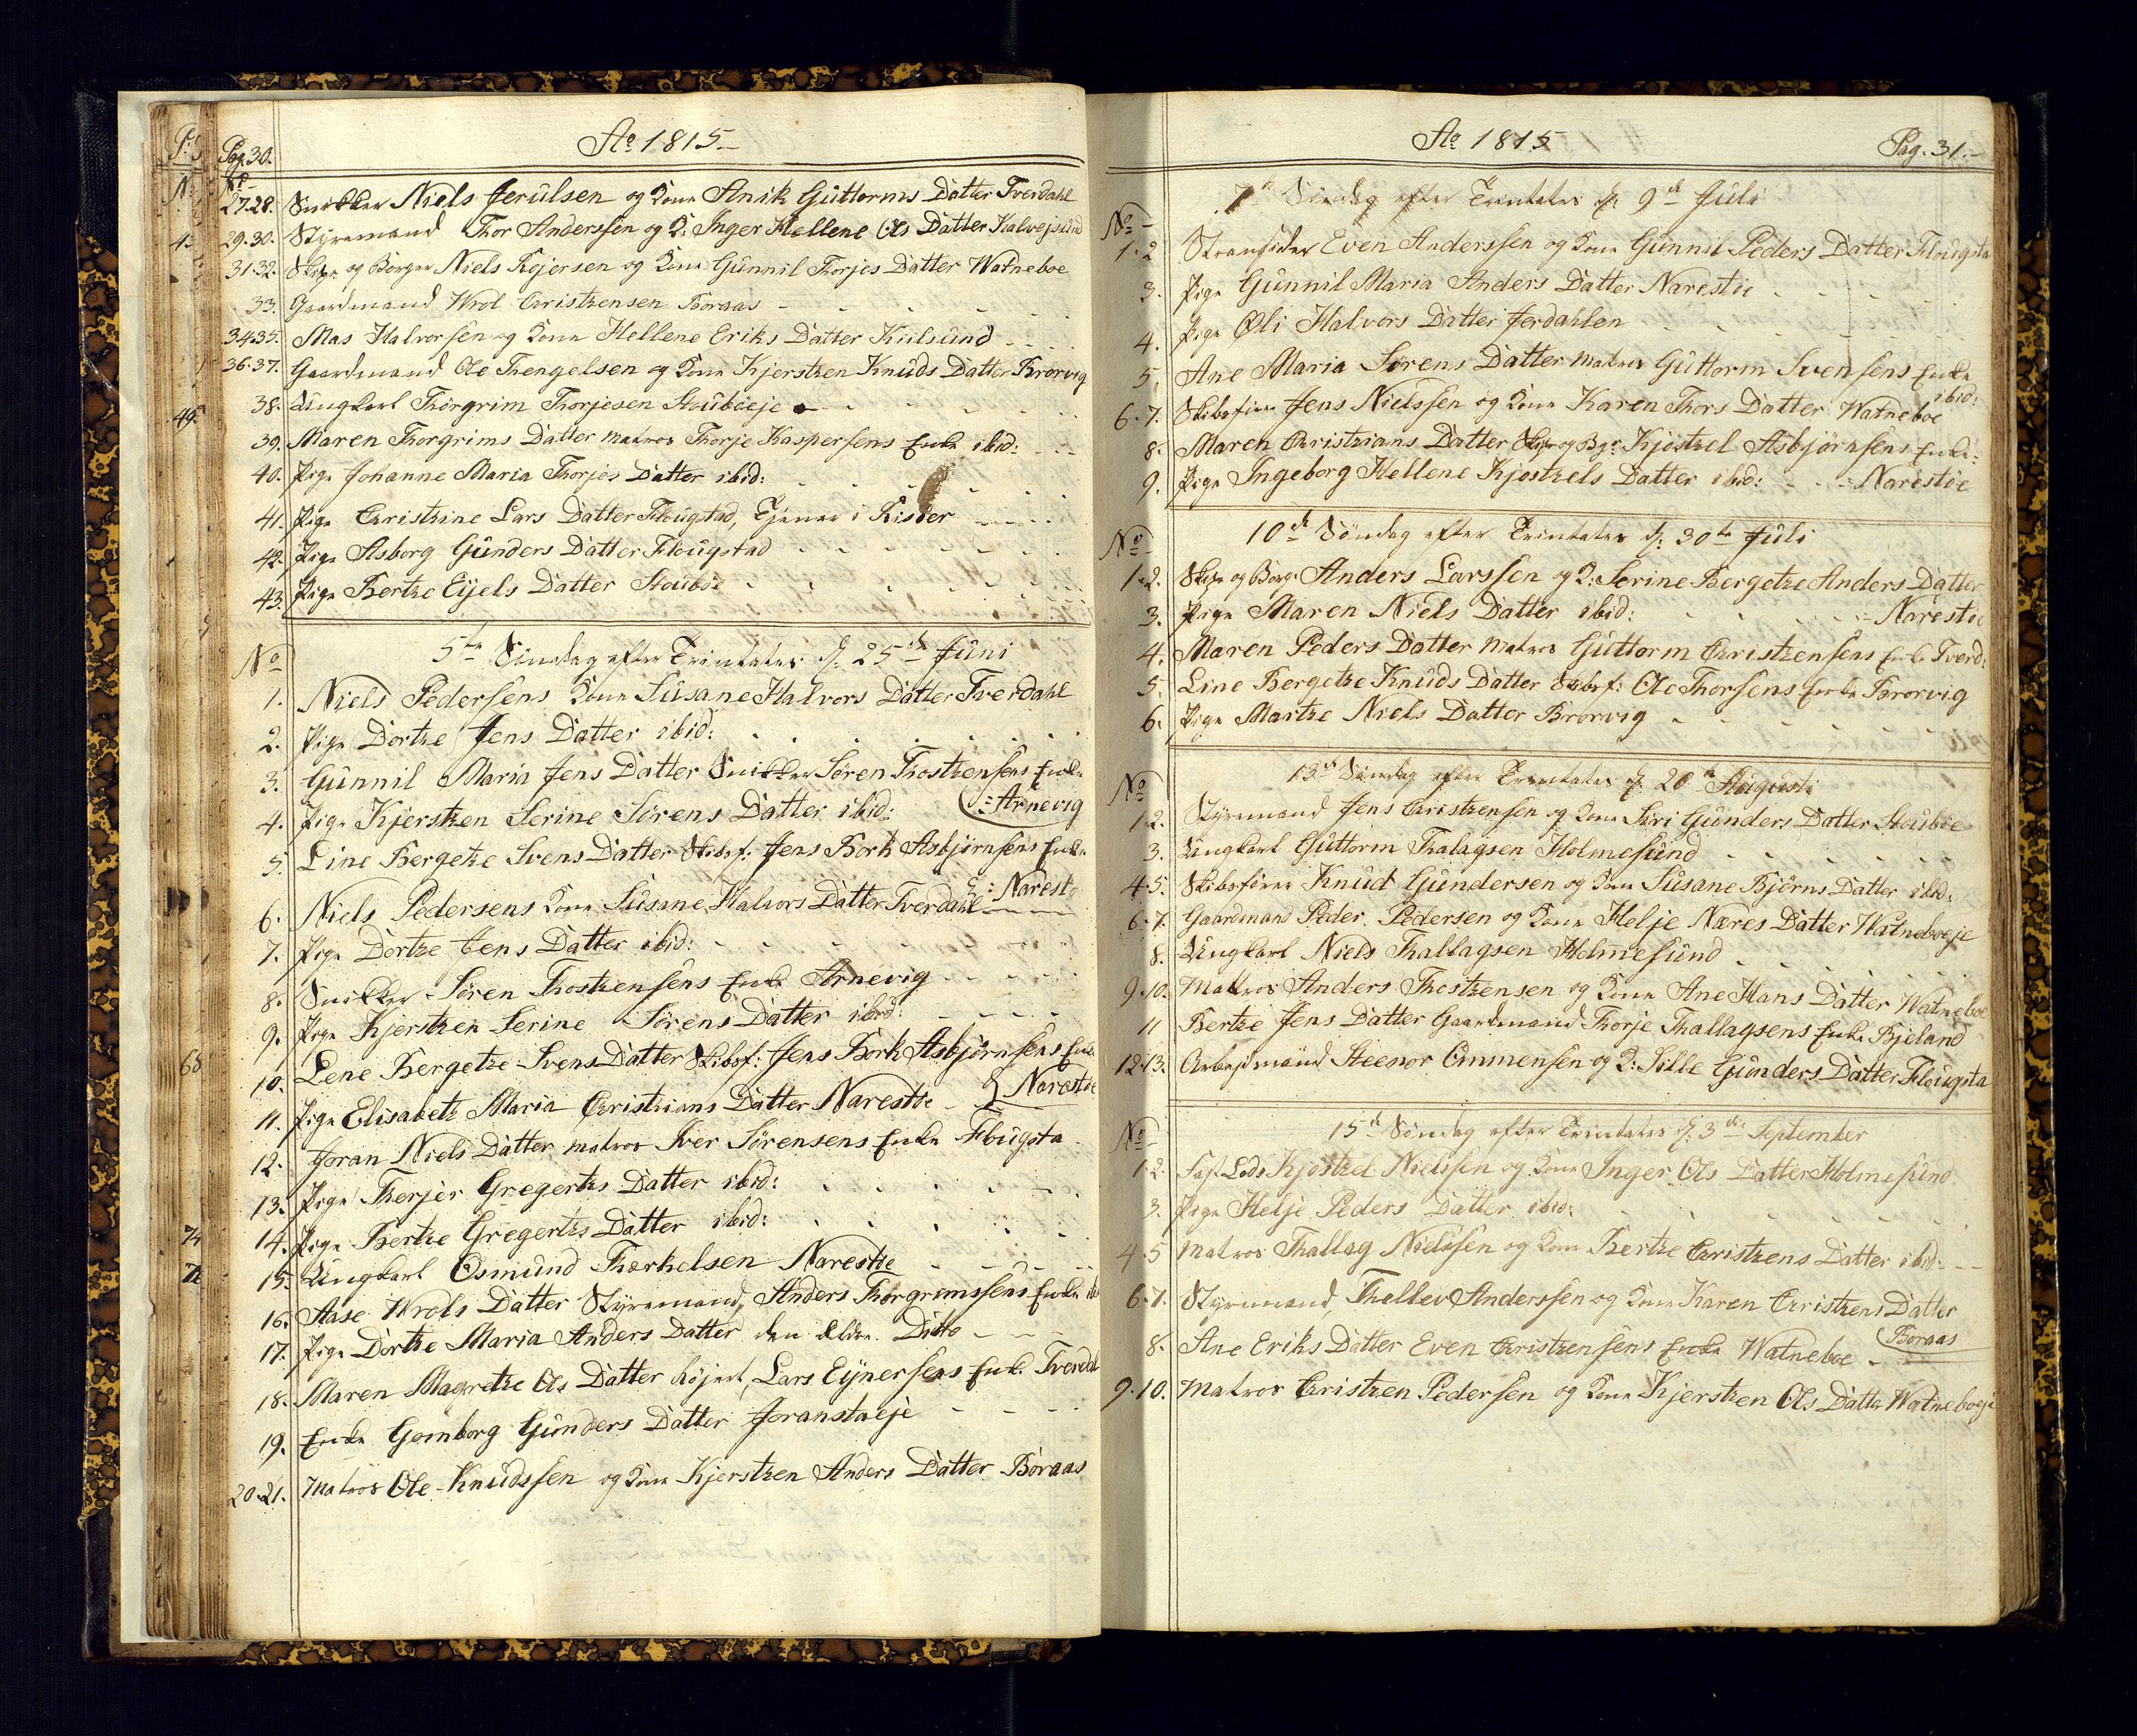 Pag. 30.
Ao 1815
No
27.28. Snikker Niels Jerulsen og Kone Anik Guttorms Datter Tverdahl
29.30. Styremand Thor Anderssen og K: Inger Hellene Ols Datter Kalvejsund
31.32. Skipr og Borger Niels Rejersen og Kone Gunnil Thorjes Datter Watneboe
33. Gaardmand Wrol Christhensen Boraas
34.35. Mas Halvorsen og Kone Hellene Eriks Datter Kulsund
36.37. Gaardmand Ole Thengelsen og Kone Kjersthen Knuds Datter Brorvig
38. Ungkarl Thorgrim Thorjesen Stouboeje
39. Maren Thorgrims Datter Matros Thorje Kaspersens Enke ibid:
40. Pige Johanne Maria Thorjes Datter ibid:
41. Pige Christhine Lars Datter Flougstad, Tjener i Risøer
42. Pige Asborg Gunders Datter Flougstad
43. Pige Berthe Eijels Datter Stouboe
5te Søndag efter Trinitates d: 25de Juni
No
1. Niels Pedersens Kone Susane Halvors Datter Tverdahl
2. Pige Dorthe Jens Datter ibid:
3. Gunnil Maria Jens Datter Snikker Søren Thosthensens Enke
4. Pige Kjersthen Serine Sørens Datter ibid: Arnevig
5. Line Bergethe Svens Datter Skibsf: Jens Bork Asbjørnsens Enke
Naresto
6. Niels Pedersens Kone Susane Halvors Datter Tverdahl
7. Pige Dorthe Jens Datter ibid:
8. Snikker Søren Thosthensens Enke Arnevig
9. Pige Kjersthen Serine Sørens Datter ibid:
10. Lene Bergethe Svens Datter Skibsf: Jens Bork Asbjørnsens Enke
11. Pige Elisabeth Maria Christhians Datter Narestoe Narestoe
12. Joran Niels Datter Matros Iver Sørensens Enke Flougsta
13. Pige Therjer Gregerths Datter ibid:
14. Pige Berthe Gregerths Datter ibid:
15. Ungkarl Osmund Therkelsen Narestøe
16. Aase Wrols Datter Styremand, Anders Thorgrimssens Enke
17. Pige Dorthe Maria Anders Datter den Eldre Ditto
18. Maren Magrethe Ols Datter Lars Eijnersens Enke Tverdal
19. Enke Gomborg Gunders Datter Joranstaeje
20.21. Matros Ole Knudssen og Kone Kjersthen Anders Datter Boraas
Ao 1815
Pag. 31.
7de Søndag efter Trinitates d: 9de Juli
No
1.2 Strandsider Even Anderssen og Kone Gunnil Peders Datter Flougsta
3. Pige Gunnil Maria Anders Datter Narestøe
4. Pige Øli Halvors Datter Jerdahlen
5. Ane Maria Sørens Datter Matros Guttorm Svensens Enke
ibid:
6.7. Skibsfører Jens Nielssen og Kone Karen Thors Datter Watneboe
8. Maren Christhians Datter Skipr og Bgr Kjosthel Asbjørnsens Enke
9. Pige Ingeborg Hellene Kjosthels Datter ibid: Narestøe
10de Søndag efter Trinitates d: 30te Juli
No
1.2. Skipr og Borgr Anders Larssen og K: Serine Bergethe Anders Datter
3. Pige Maren Niels Datter ibid: Narestøe
4. Maren Peders Datter Matros Guttorm Christhensens Enke Tverd:
5. Line Bergethe Knuds Datter Skibsf: Ole Thorsens Enke Brorvig
6. Pige Marthe Niels Datter Brorvig
13de Søndag efter Trinitates d: 20de Augusti
No
1.2. Styremand Jens Christhensen og Kone Siri Gunders Datter Stouboe
3. Ungkarl Guttorm Thalagsen Holmesund
4.5. Skibsfører Knud Gundersen og Kone Susane Bjørns Datter ibid:
6.7. Gaardmand Peder Pedersen og Kone Helje Næres Datter Watneboeje
8. Ungkarl Niels Thallagsen Holmesund
9.10. Matros Anders Thosthensen og Kone Ane Hans Datter Watneboe
11 Berthe Jens Datter Gaardmand Thorje Thallagsens Enke Bjeland
12.13. Arbejsmand Steenor Ommensen og K: Sille Gunders Datter Flougsta
15de Søndag efter Trinitates d: 3de September
No
1.2. Fast Lods Kjosthel Nielssen og Kone Inger Ols Datter Holmesund
3. Pige Helje Peders Datter ibid:
4.5 Matros Thallag Nielssen og Kone Berthe Christhens Datter ibid:
6.7. Styremand, Thellev Anderssen og Kone Karen Christhens Datter
Boraas
8. Ane Eriks Datter Even Christhensens Enke Watneboe
9.10. Matros Christhen Pedersen og Kone Kjersthen Ols Datter Watneboeje